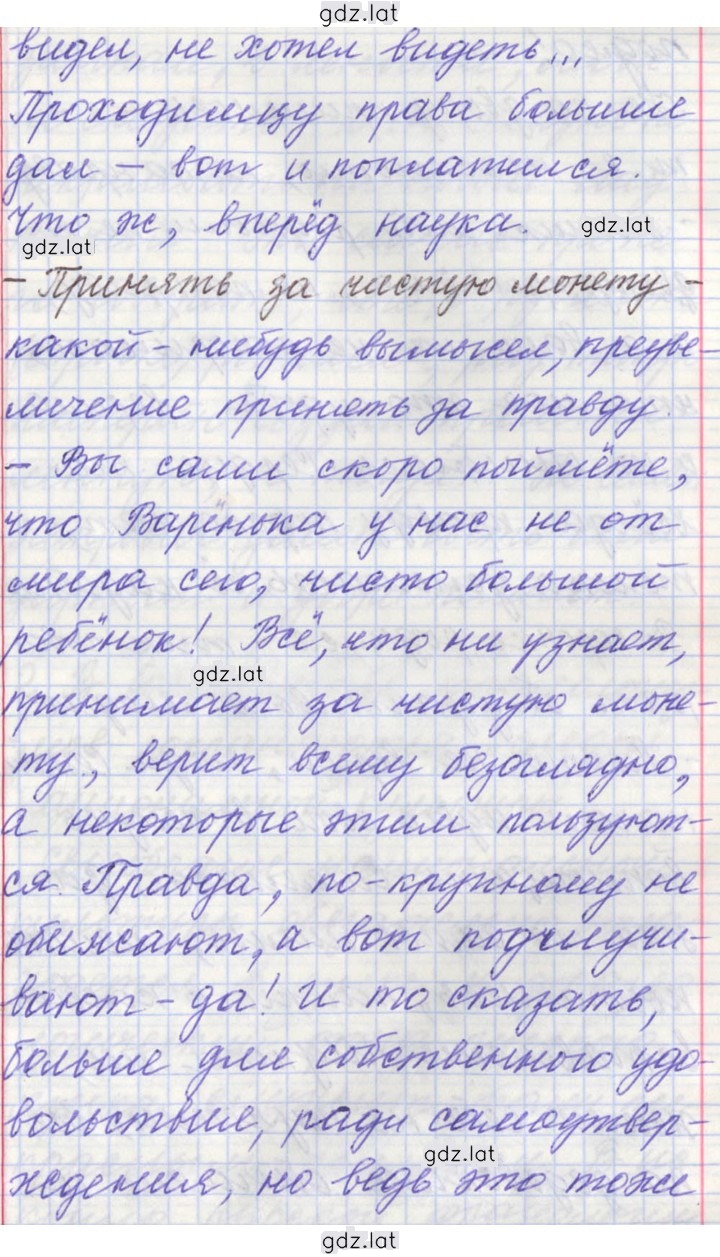 gdz.lat
видел, не хотел видеть...
Проходимцу права больше
дал – вот и поплатился.
Что ж, вперёд наука. gdz.lat
gdz.lat
– Принять за чистую монету –
какой-нибудь вымысел, преуве-
личение принять за правду.
– Вы сами скоро поймёте,
что Варёнька у нас не от
мира сего, чисто большой
ребёнок! Всё, что ни узнает,
gdz.lat
принимает за чистую моне-
ту, верит всему безоглядно,
а некоторые этим пользуют-
ся. Правда, по-крупному не
обижают, а вот подшучи-
вают – да! И то сказать,
больше для собственного удо-
вольствия, ради самоутвер-
gdz.lat
ждения, но ведь это тоже
gdz.lat